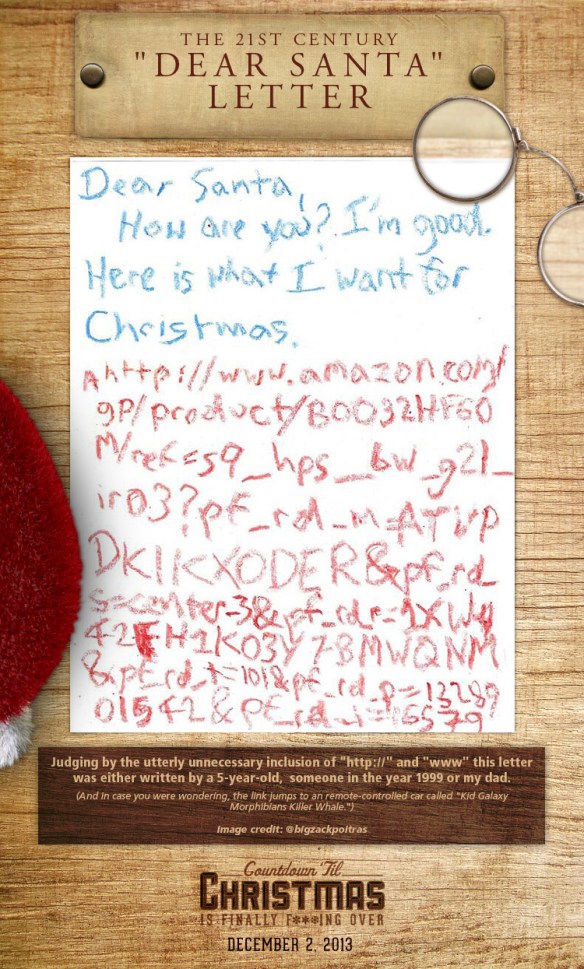 THE 21ST CENTURY
"DEAR SANTA"
LETTER
Dear Santa,
How are you? I'm good.
Here is what I want for
Christmas.
A http://www.amazon.com/
gp/product/B0032HF60
M/ref=s9_hps_bw_g21_
ir03?pf_rd_m=ATVP
DKIKX0DER&pf_rd_
s=center-3&pf_rd_r=1XWY
42FH1K03Y78MWQNM
&pf_rd_t=101&pf_rd_p=13289
01542&pf_rd_i=16579
Judging by the utterly unnecessary inclusion of "http://" and "www" this letter
was either written by a 5-year-old, someone in the year 1999 or my dad.
(And In case you were wondering, the link jumps to an remote-controlled car called "Kid Galaxy
Morphibians Killer Whale.")
Image credit: @bigzackpoitras
Countdown 'Til
CHRISTMAS
IS FINALLY F***ING OVER
DECEMBER 2, 2013